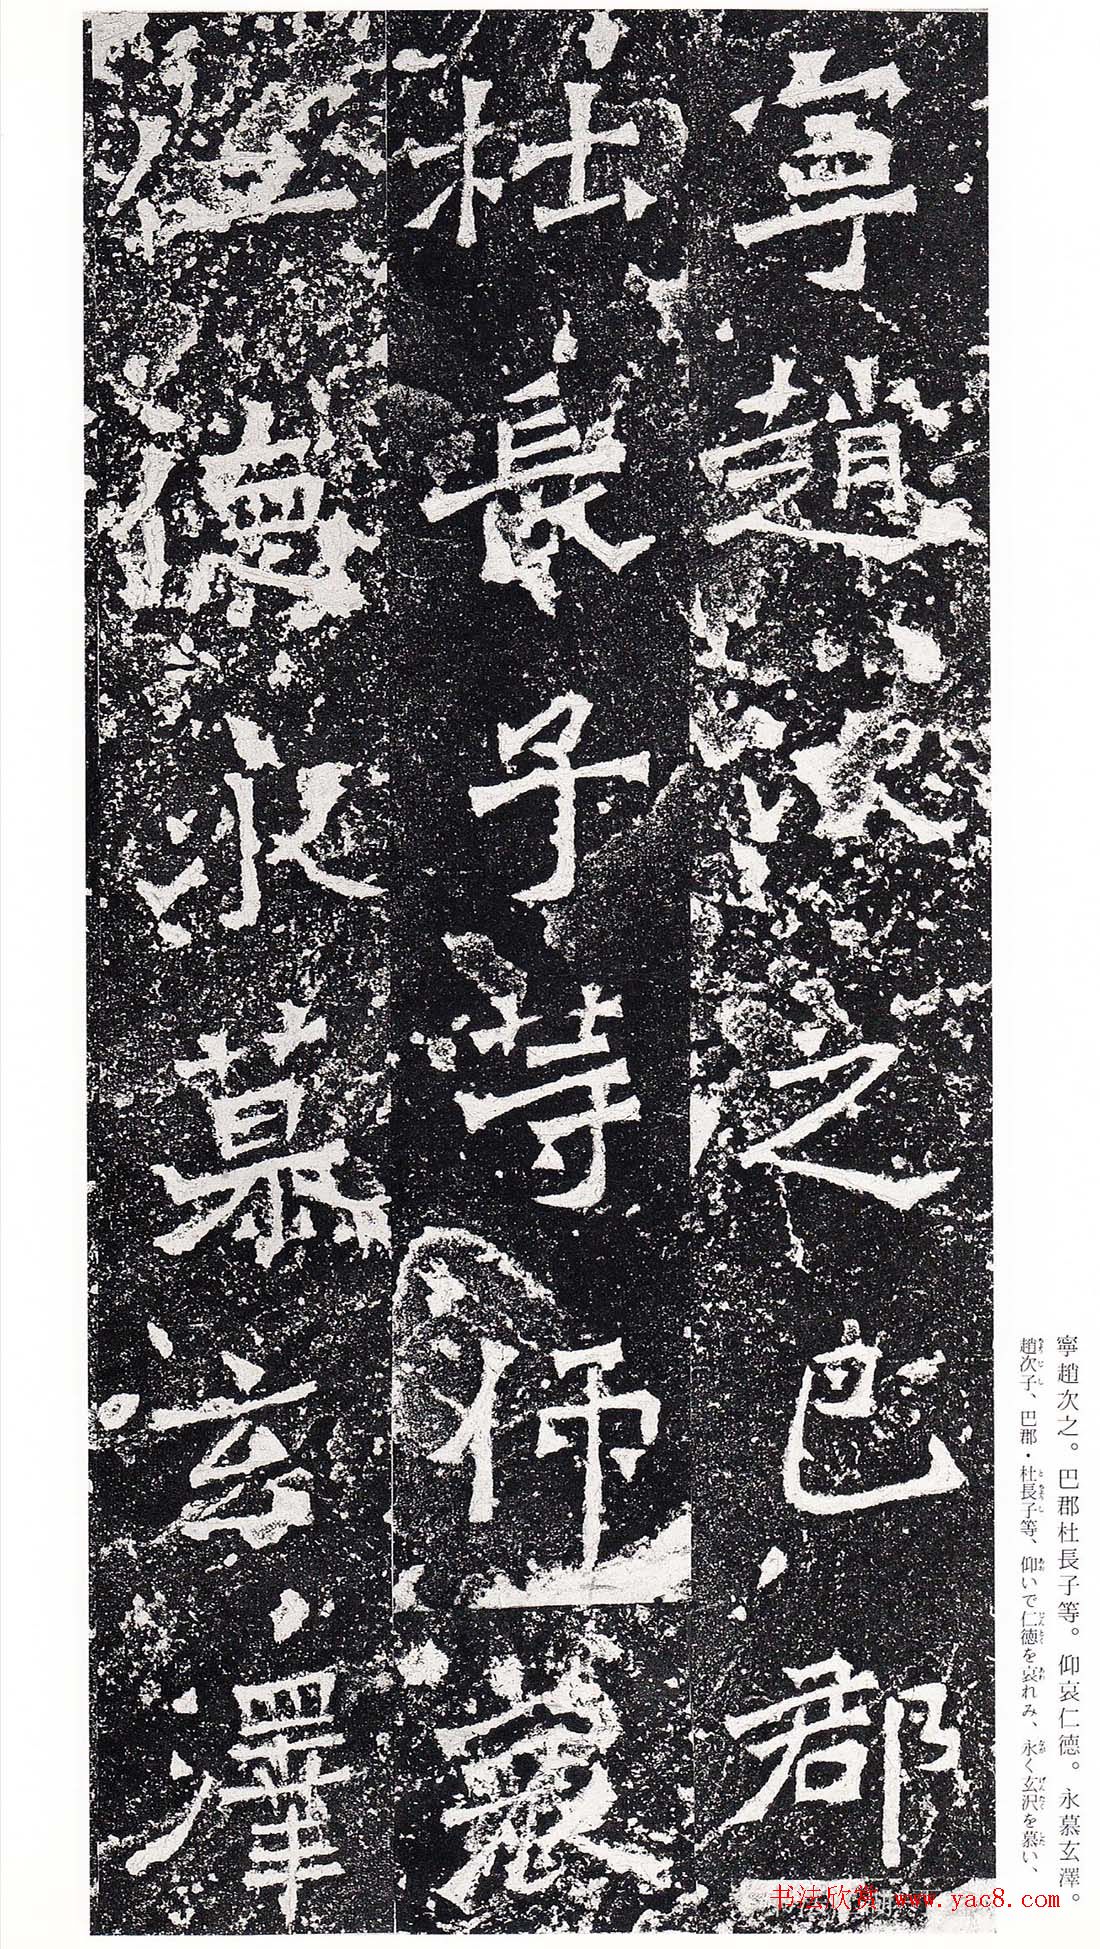 寧趙次之巴郡
杜長子等仰哀
仁德永慕玄澤
寧趙次之。巴郡杜長子等。仰哀仁德。永慕玄澤。
趙次子、巴郡・杜長子等、仰いで仁徳を哀れみ、永く玄沢を慕い、
书法欣赏 www.yac8.com